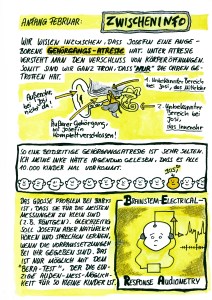 ANFANG FEBRUAR:
ZWISCHENINFO
WIR WISSEN INZWISCHEN, DASS JOSEFIN EINE ANGE-
BORENE GEHÖRGANGS-ATRESIE HAT. UNTER ATRESIE
VERSTEHT MAN DEN VERSCHLUSS VON KÖRPERÖFFNUNGEN.
SOMIT SIND WIR GANZ FROH, DASS "NUR" DIE OHREN BE-
TROFFEN HAT.
Außenohr
bei Josi
nicht da!
1. Unbekannter Bereich
bei Josi, das Mittelohr
2. Unbekannter
Bereich
das Innenohr
Äußerer Gehörgang,
bei Josefin
komplett verschlossen!
SO EINE BEIDSEITIGE GEHÖRGANGSATRESIE IST SEHR SELTEN.
ICH MEINE INKE HÄTTE IRGENDWO GELESEN, DASS ES ALLE
10.000 KINDER MAL VORKOMMT.
JOSI
DAS GROSSE PROBLEM BEI BABYS
IST, DASS SIE FÜR DIE MEISTEN
MESSUNGEN ZU KLEIN SIND
(Z.B. RÖNTGEN). GLEICHZEITIG
SOLL JOSEFIN ABER MÖGLICHST
HÖREN UND SPRECHEN LERNEN,
WENN DIE VORRAUSSETZUNGEN
BEI IHR GEGEBEN SIND. DAS
IST NUR MÖGLICH MIT DEM
"BERA-TEST", DER DIE EIN-
ZIGE MESS-MÖGLICH-
KEIT FÜR SO KLEINE KINDER IST.
BRAINSTEM-ELECTRICAL-
RESPONSE AUDIOMETRY